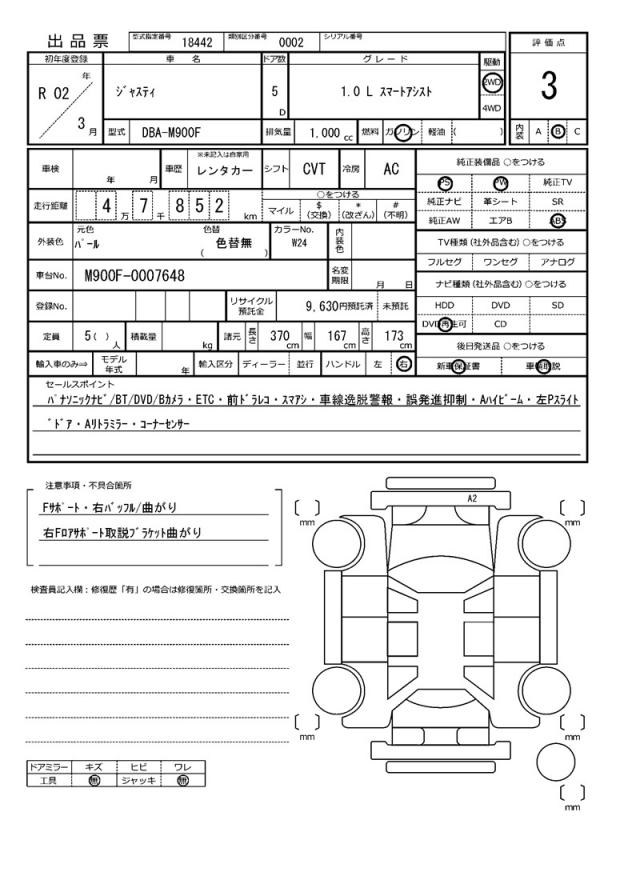 出品票 型式指定番号 18442 類別区分番号 0002 シリアル番号
評価点
3
初年度登録 車名 ドア数 グレード 駆動
R 02 年 3 月
ｼﾞｬｽﾃｨ 5 D 1.0 L ｽﾏｰﾄｱｼｽﾄ 2WD
4WD
型式 DBA-M900F 排気量 1,000 cc 燃料 ガソリン 軽油 ( )
内装 A B C
車検 年 月 車歴 ※未記入は自家用 レンタカー シフト CVT 冷房 AC
走行距離 4 万 7 千 8 5 2 km
○をつける
マイル $(交換) *(改ざん) #(不明)
外装色 元色 ﾊﾟｰﾙ 色替 ( 色替無 ) カラーNo. W24 内装色
車台No. M900F-0007648 名変期限 月 日
登録No. リサイクル預託金 9,630円預託済 未預託
定員 5( )人 積載量 kg 諸元 長さ 370 cm 幅 167 cm 高さ 173 cm
輸入車のみ⇒ モデル年式 年 輸入区分 ディーラー 並行 ハンドル 左 右
純正装備品 ○をつける
PS PW 純正TV
純正ナビ 革シート SR
純正AW エアB ABS
TV種類 (社外品含む) ○をつける
フルセグ ワンセグ アナログ
ナビ種類 (社外品含む) ○をつける
HDD DVD SD
DVD再生可 CD
後日発送品 ○をつける
新車保証書 車輌取説
セールスポイント
ﾊﾟﾅｿﾆｯｸﾅﾋﾞ/BT/DVD/Bカメラ・ETC・前ﾄﾞﾗﾚｺ・ｽﾏｱｼ・車線逸脱警報・誤発進抑制・Aﾊｲﾋﾞｰﾑ・左Pｽﾗｲﾄ
ﾞﾄﾞｱ・Aﾘﾄﾗﾐﾗｰ・ｺｰﾅｰｾﾝｻｰ
注意事項・不具合箇所
Fｻﾎﾟｰﾄ・右ﾊﾞｯﾌﾙ/曲がり
右Fﾛｱｻﾎﾟｰﾄ取説ﾌﾞﾗｹｯﾄ曲がり
検査員記入欄：修復歴「有」の場合は修復箇所・交換箇所を記入
A2
[ ] mm
[ ] mm
[ ] mm
[ ] mm
[ ] mm
ドアミラー キズ ヒビ ワレ
工具 無 ジャッキ 無